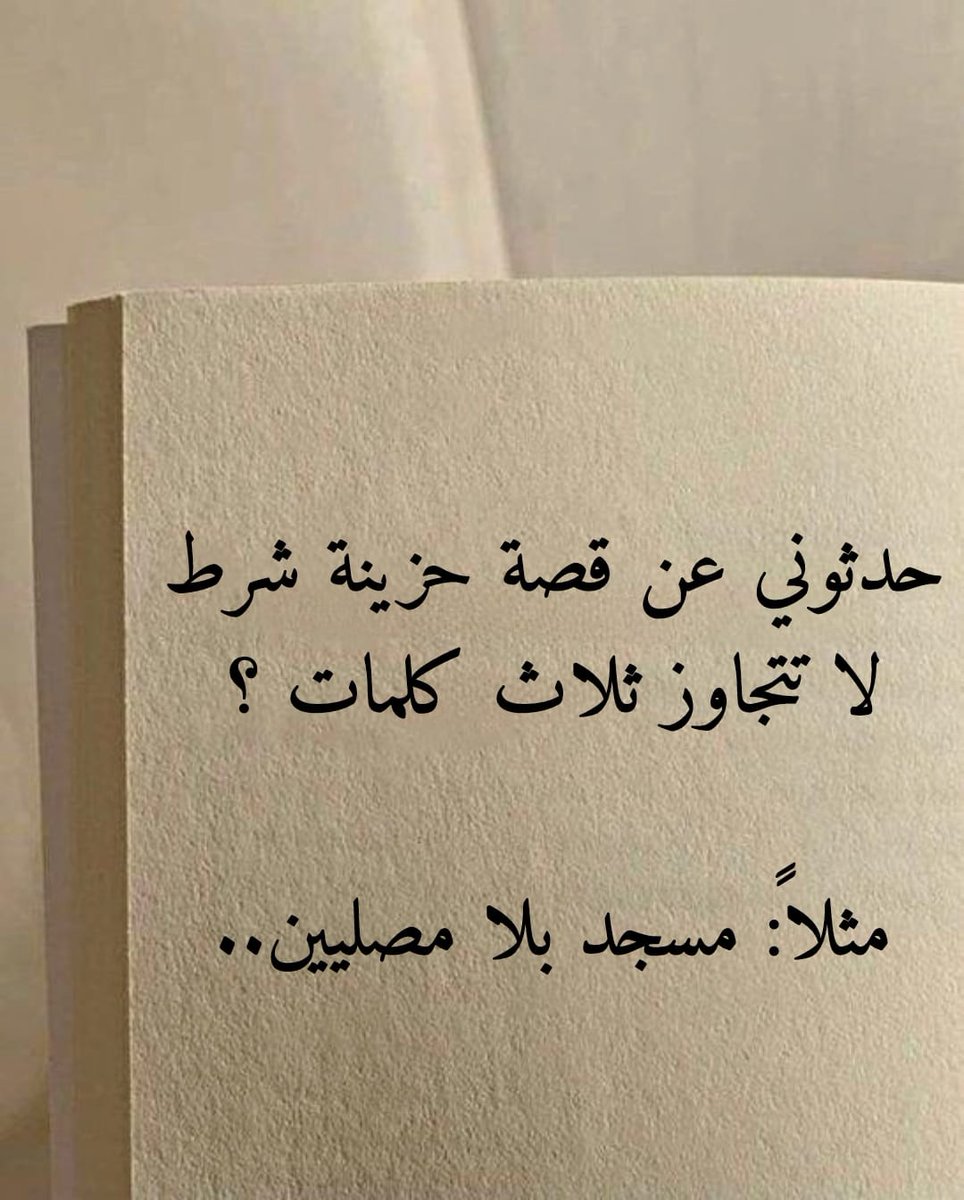 حدثوني عن قصة حزينة شرط
لا تتجاوز ثلاث كلمات ؟
مثلاً: مسجد بلا مصليين..